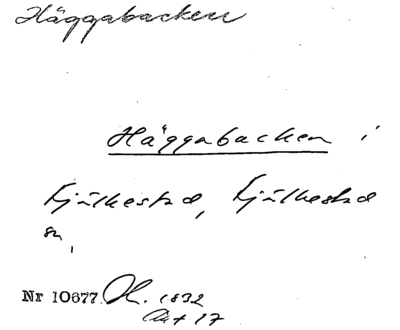 Häggabacken
Häggabacken i
Kjulkestad, Kjulkestad
sn,
Nr 10677. H. 1832
Akt 17